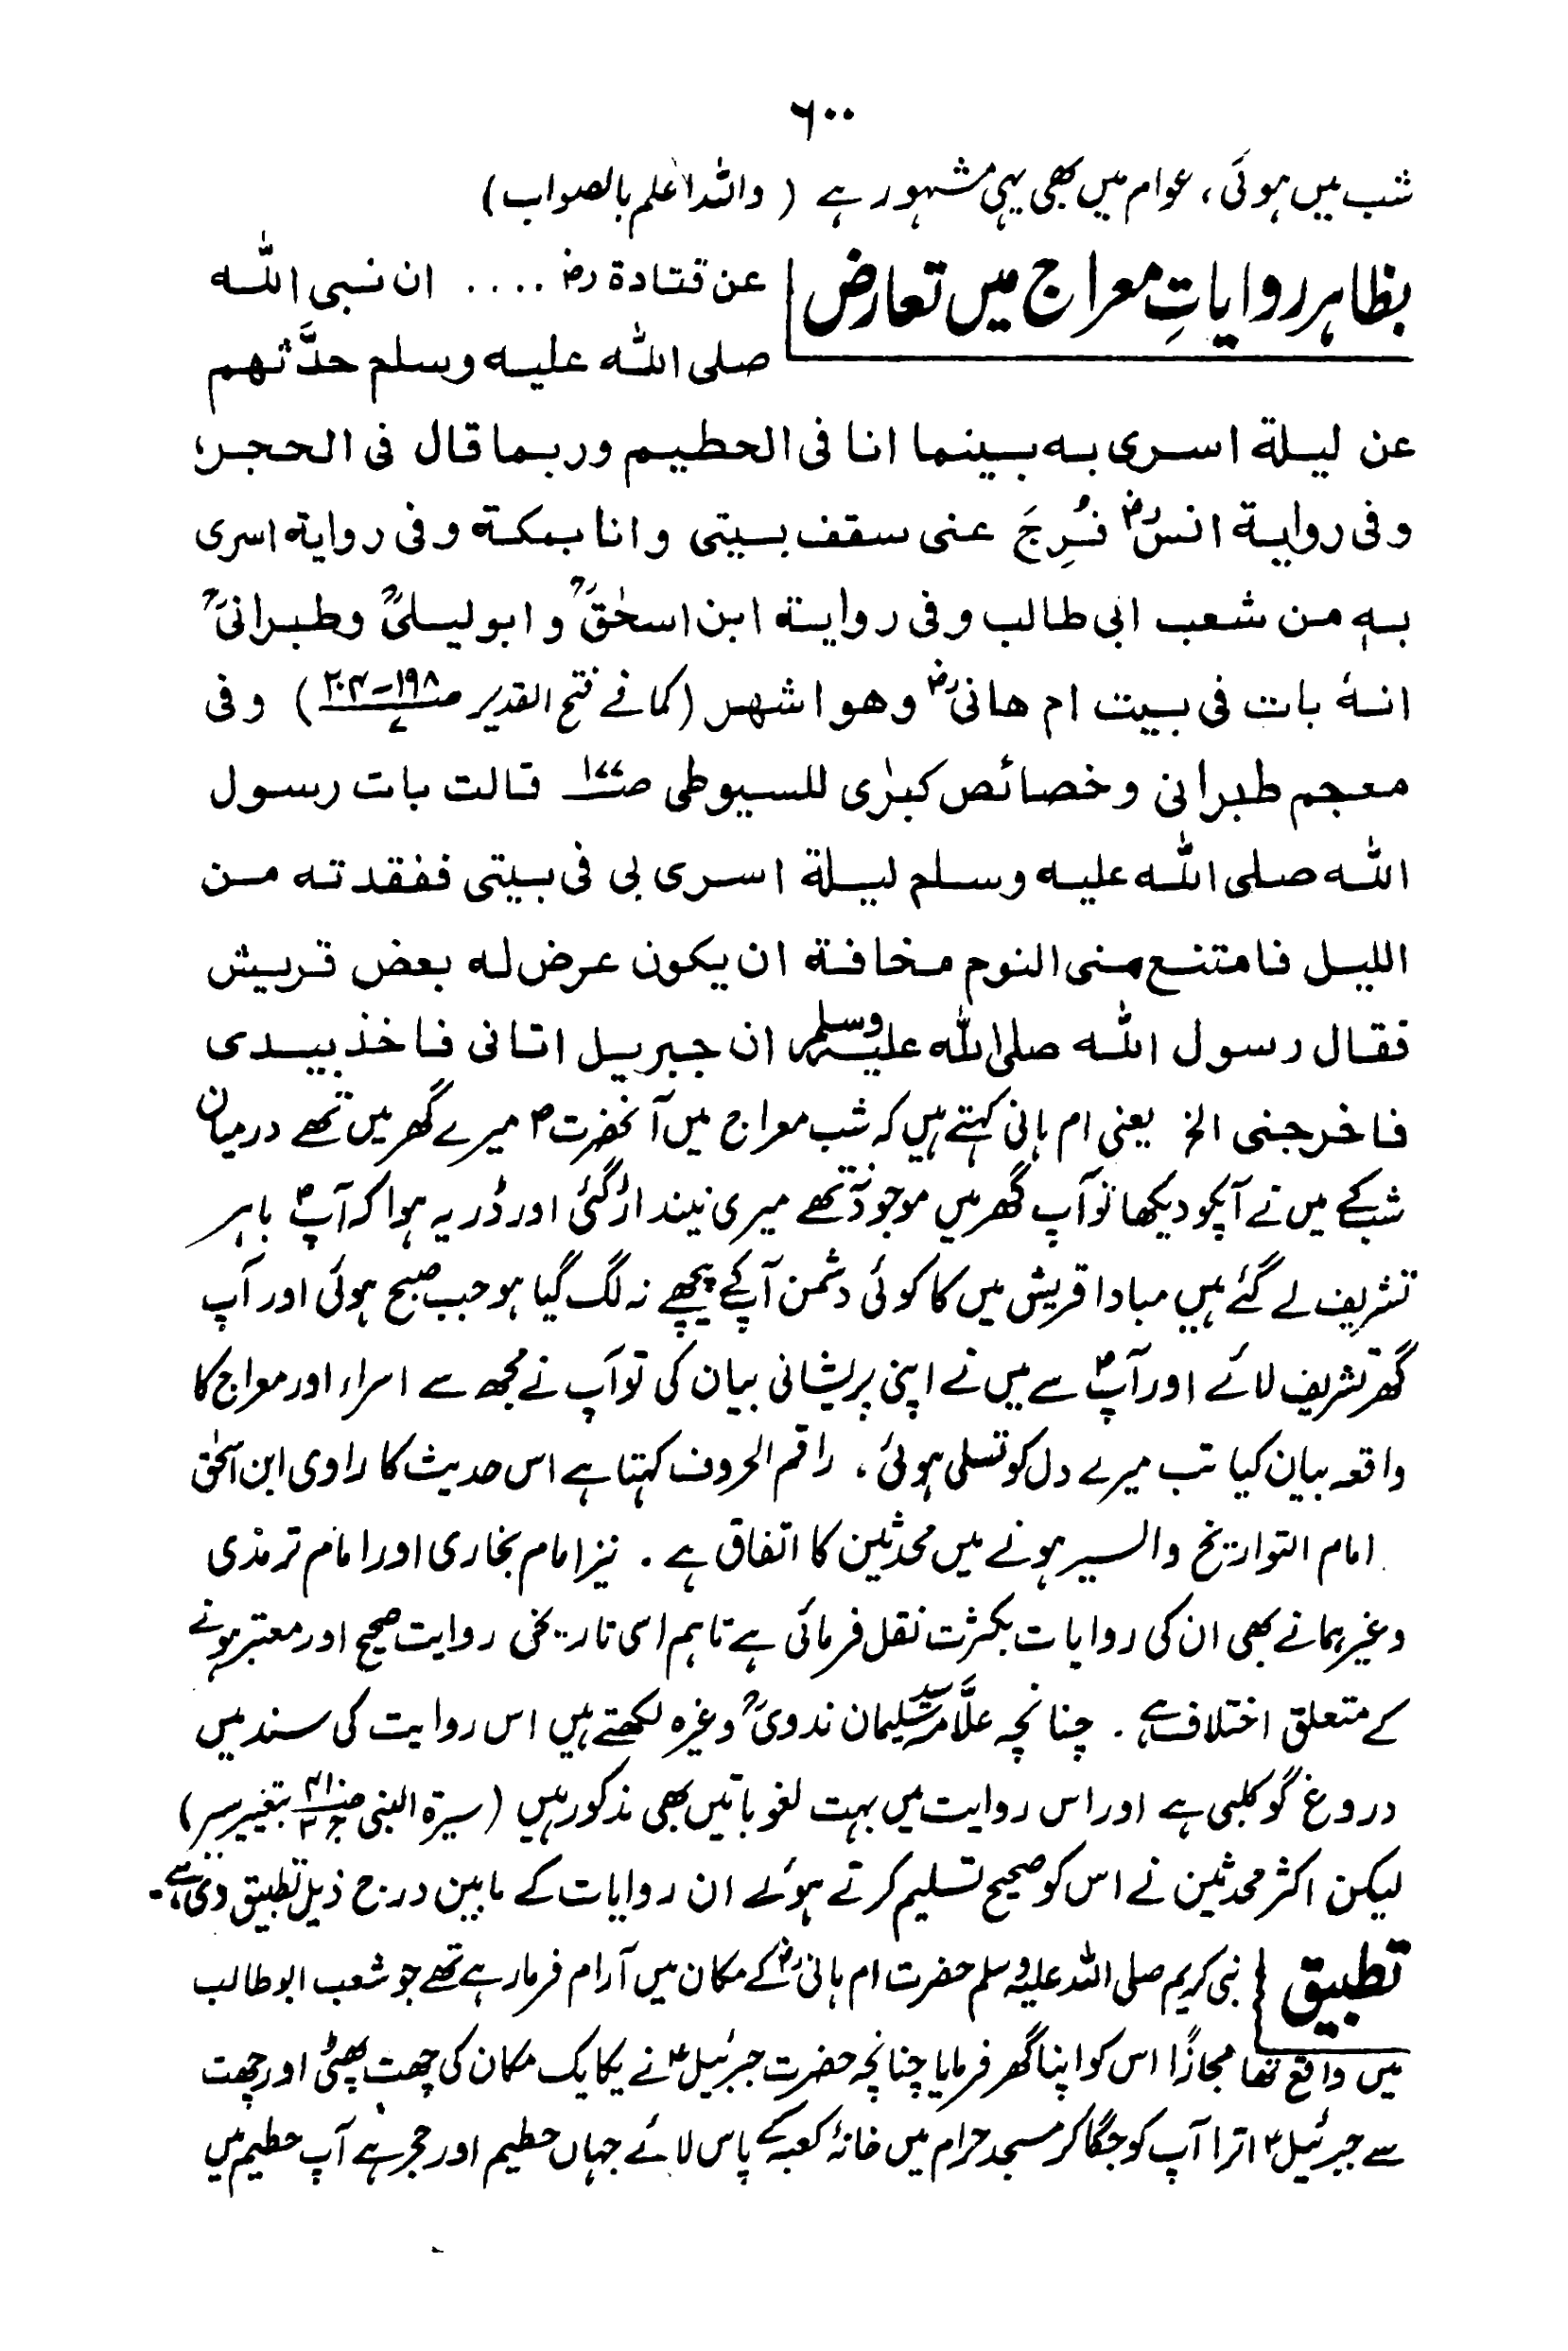 ۶۰۰
شب میں ہوئی، عوام میں بھی یہی مشہور ہے (واللہ اعلم بالصواب)
بظاہر روایاتِ معراج میں تعارض عن قتادة رض .... ان نبی اللہ
صلی اللہ علیہ وسلم حدَّثهم
عن ليلة اسرى به بينما انا فى الحطيم وربما قال فى الحجر،
وفى رواية انسؓ فُرِجَ عنى سقف بيتى وانا بمكة وفى رواية اسرى
به من شعب ابى طالب وفى رواية ابن اسحٰقؒ وابو ليلىؒ وطبرانیؒ
انهٗ بات فى بيت ام هانئؓ وهو اشهر (کما فے فتح القدیر ص۱۹۸-۲۰۴) وفى
معجم طبرانى وخصائص کبرٰى للسيوطى ص۱۷۷ قالت بات رسول
الله صلى الله عليه وسلم ليلة اسرى بى فى بيتى ففقدته من
الليل فامتنع منى النوم مخافة ان يكون عرض له بعض قريش
فقال رسول الله صلى الله عليه وسلم ان جبريل اتانى فاخذ بيدى
فاخرجنى الخ یعنی ام ہانی کہتے ہیں کہ شب معراج میں آنحضرت ؐ میرے گھر میں تھے درمیان
شب کے میں نے آپکو دیکھا تو آپ گھر میں موجود نہ تھے میری نیند اڑ گئی اور ڈر یہ ہوا کہ آپؐ باہر
تشریف لے گئے ہیں مبادا قریش میں کا کوئی دشمن آپ کے پیچھے نہ لگ گیا ہو جب صبح ہوئی اور آپ
گھر تشریف لائے اور آپؐ سے میں نے اپنی پریشانی بیان کی تو آپ نے مجھ سے اسراء اور معراج کا
واقعہ بیان کیا تب میرے دل کو تسلی ہوئی، راقم الحروف کہتا ہے اس حدیث کا راوی ابن اسحٰق
امام التواریخ والسیر ہونے میں محدثین کا اتفاق ہے۔ نیز امام بخاری اور امام ترمذی
وغیرہما نے بھی ان کی روایات بکثرت نقل فرمائی ہے تاہم اسی تاریخی روایت صحیح اور معتبر ہونے
کے متعلق اختلاف ہے۔ چنانچہ علَّامہ سید سلیمان ندویؒ وغیرہ لکھتے ہیں اس روایت کی سند میں
دروغ گو کلبی ہے اور اس روایت میں بہت لغو باتیں بھی مذکور ہیں (سیرۃ النبی بتغییر یسیر)
لیکن اکثر محدثین نے اس کو صحیح تسلیم کرتے ہوئے ان روایات کے مابین درج ذیل تطبیق دی ہے۔
تطبیق نبی کریم صلی اللہ علیہ وسلم حضرت ام ہانیؓ کے مکان میں آرام فرما رہے تھے جو شعب ابو طالب
میں واقع تھا مجازًا اس کو اپنا گھر فرمایا چنانچہ حضرت جبرئیلؑ نے یکایک مکان کی چھت پھٹی اور چھت
سے جبرئیلؑ اترا آپ کو جگا کر مسجد حرام میں خانۂ کعبہ کے پاس لائے جہاں حطیم اور حجر ہے آپ حطیم میں